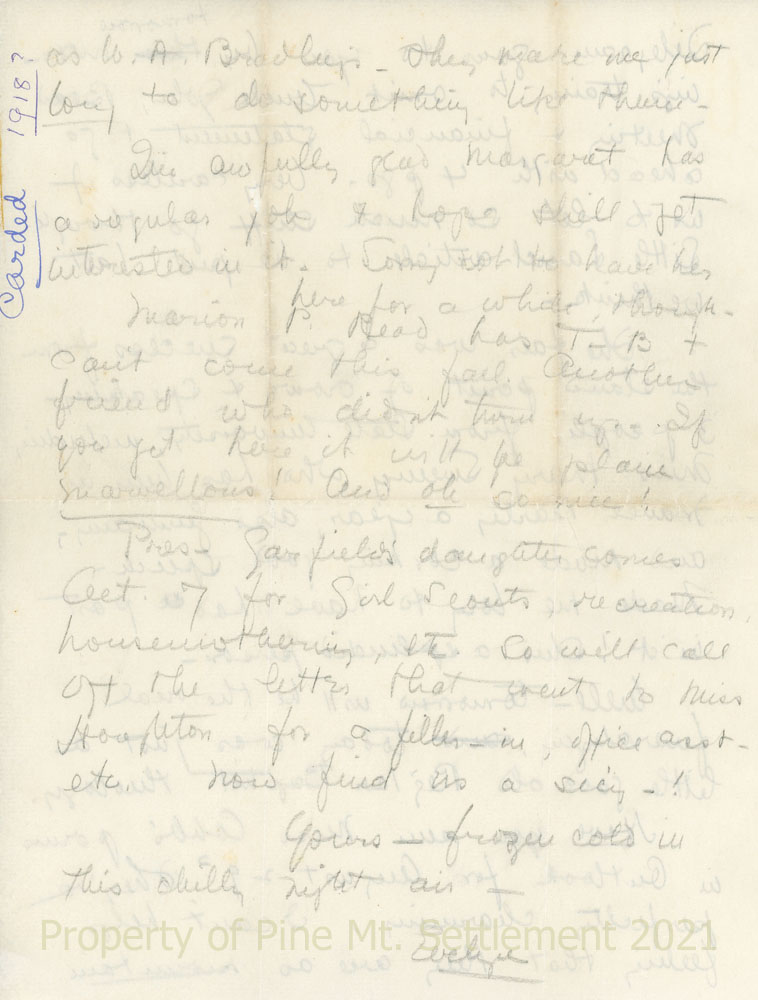 as W. A. Bradley's - They make me just
long to do something like them -
I'm awfully glad Margaret has
a regular job & hope she'll get
interested in it. Sorry not to have her
here for a while, though -
Marion P. Read has T-B &
can't come this fall. Another
friend who didn't turn up. If
you get here it will be plain
marvellous! And oh so nice!
Pres - Garfield's daughter comes
Oct. 7 for Girl Scouts, recreation,
housemothering, etc. So will call
off the letter that went to Miss
Houghton for a filler-in, office asst -
etc. Now find us a sec'y -!
Yours - frozen cold in
this chilly night air -
Evelyn
Carded 1918?
Property of Pine Mt. Settlement 2021